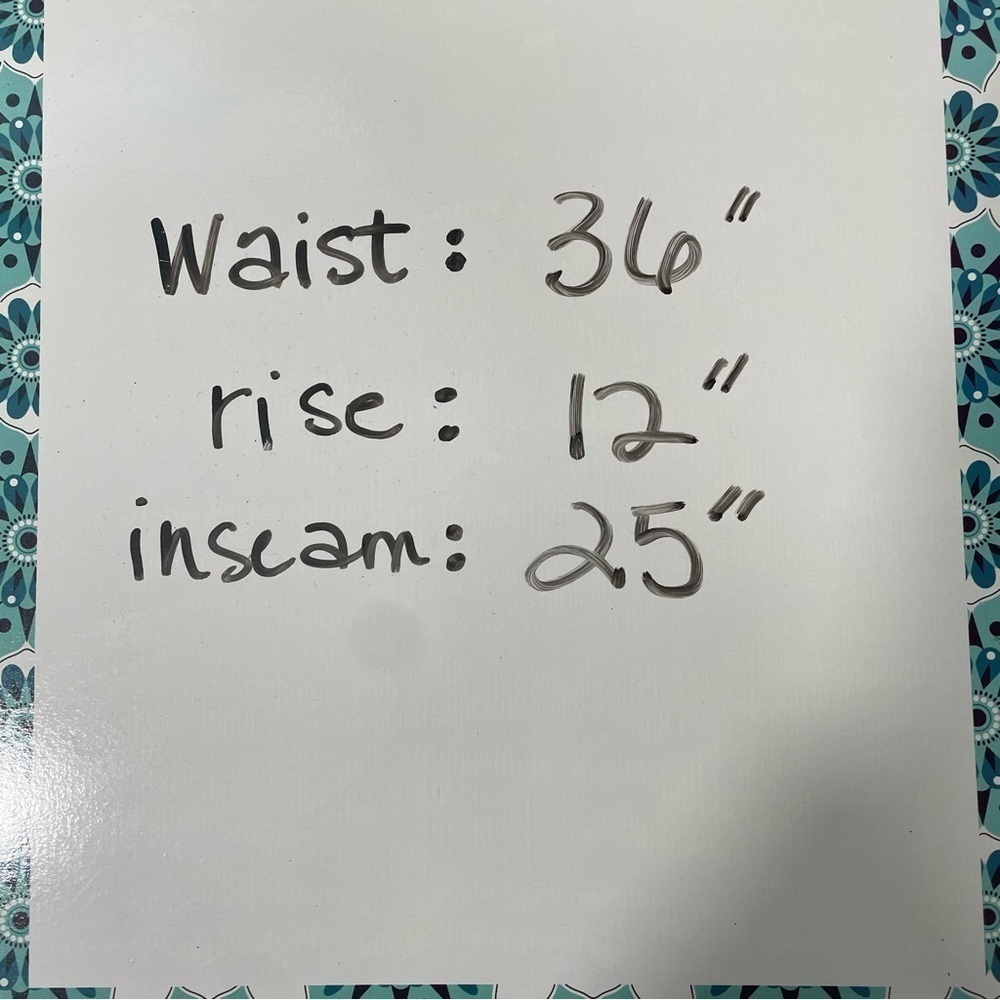 Waist: 36"
rise: 12"
inseam: 25"